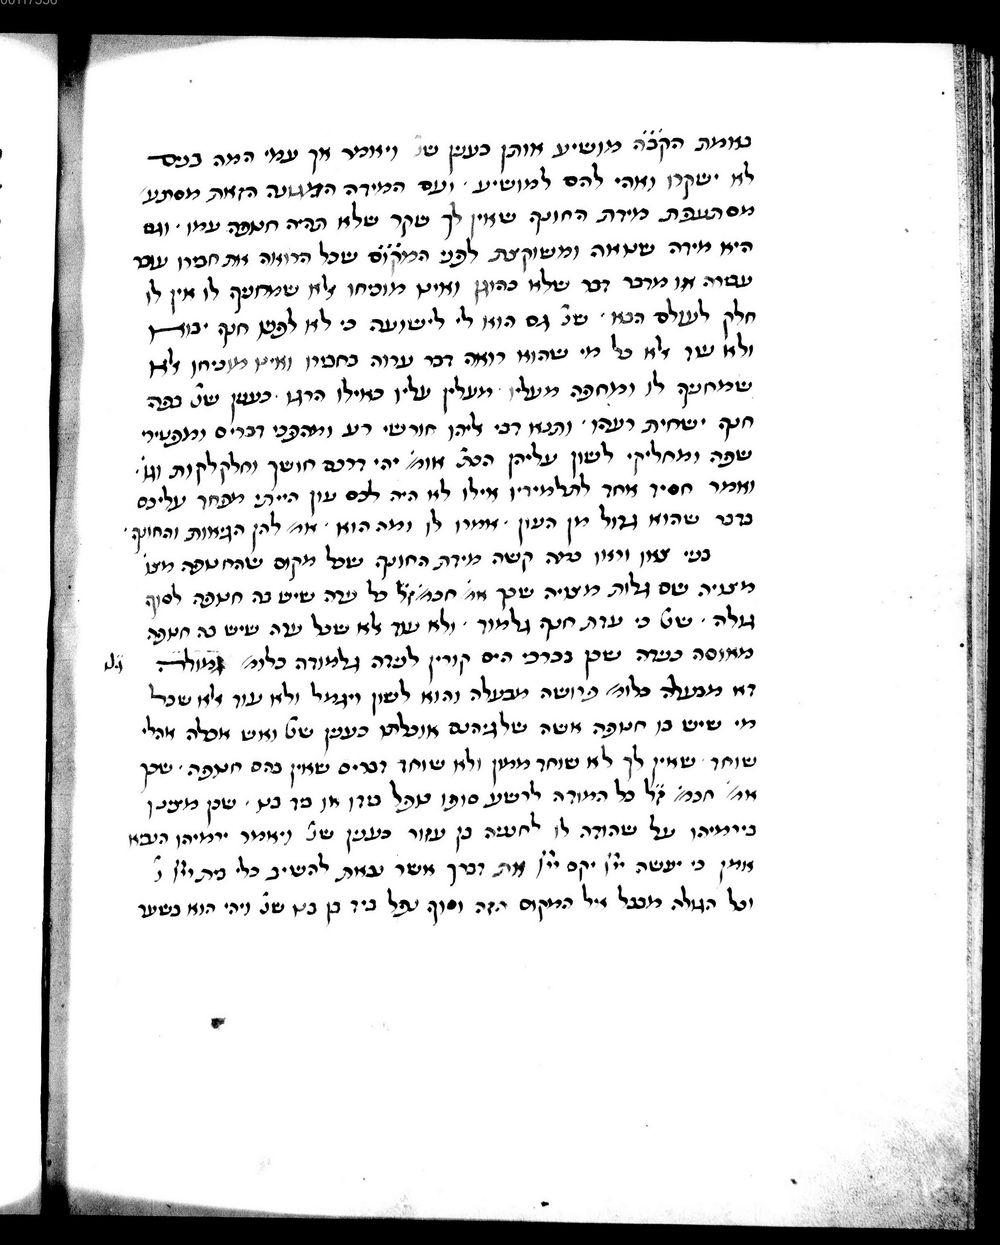 באמת הק̇ב̇ה̇ מושיע אותן כענין שנ׳ ויאמר אך עמי המה בנים
לא ישקרו ואהי להם למושיע · ועם המידה הזאת מסתע׳
מסתעפת מידת החונף שאין לך שקר שלא תהיה חנופה עמו · וגם
היא מידה שנואה ומשוקצת לפני המקום שכל הרואה את חבירו עובר
עבירה או מדבר דבר שלא כהוגן ואינו מוכיחו אלא שמחניף לו אין לו
חלק לעולם הבא · שנ׳ גם הוא לי לישועה כי לא לפניו חנף יבוא
ולא עוד אלא כל מי שהוא רואה דבר ערוה בחבירו ואינו מוכיחו אלא
שמחניף לו ומחפה מעליו מעלין עליו כאילו הרגו · כענין שנ׳ בפה
חנף ישחית רעהו · ותנא דבי אליהו חורשי רע ומהפכי דברים ומפטירי
שפה ומחליקי לשון עליהן הכת׳ אומ׳ יהי דרכם חושך וחלקלקות וגו׳ ·
ואמר חסיד אחד לתלמידיו אילו לא היה לכם עון הייתי מפחד עליכם
בדבר שהוא גדול מן העון · אמרו לו ומה הוא · אמ׳ להן הגאות והחונף ·
בני צאו וראו כמה קשה מידת החונף שכל מקום שהחנופה מצו׳
מצויה שם גלות מצויה שכך אמ׳ חכמ׳ ז״ל כל עדה שיש בה חנופה לסוף
גולה · שנ׳ כי עדת חנף גלמוד · ולא עוד אלא שכל עדה שיש בה חנופה
מאוסה כנדה שכן בכרכי הים קורין לנדה גלמודה כלומ׳ גמולה
דא מבעלה כלומ׳ פרושה מבעלה והוא לשון ויגמל ולא עוד אלא שכל
מי שיש בו חנופה אשה של גיהנם אוכלתו כענין שנ׳ ואש אכלה אהלי
שוחד · שאין לך לא שוחד ממון ולא שוחד דברים שאין בהם חנופה · שכך
אמ׳ חכמ׳ ז״ל כל המודה לרשע סופו נופל בידו או ביד בנו · שכן מצינו
בירמיהו על שהודה לו לחנניה בן עזור כענין שנ׳ ויאמר ירמיהו הנביא
אמן כי יעשה ייי יקם ייי את דברך אשר נבאת להשיב כלי בית ייי
וכל הגולה מבבל אל המקום הזה וסוף נפל ביד בן בנו שנ׳ ויהי הוא בשער